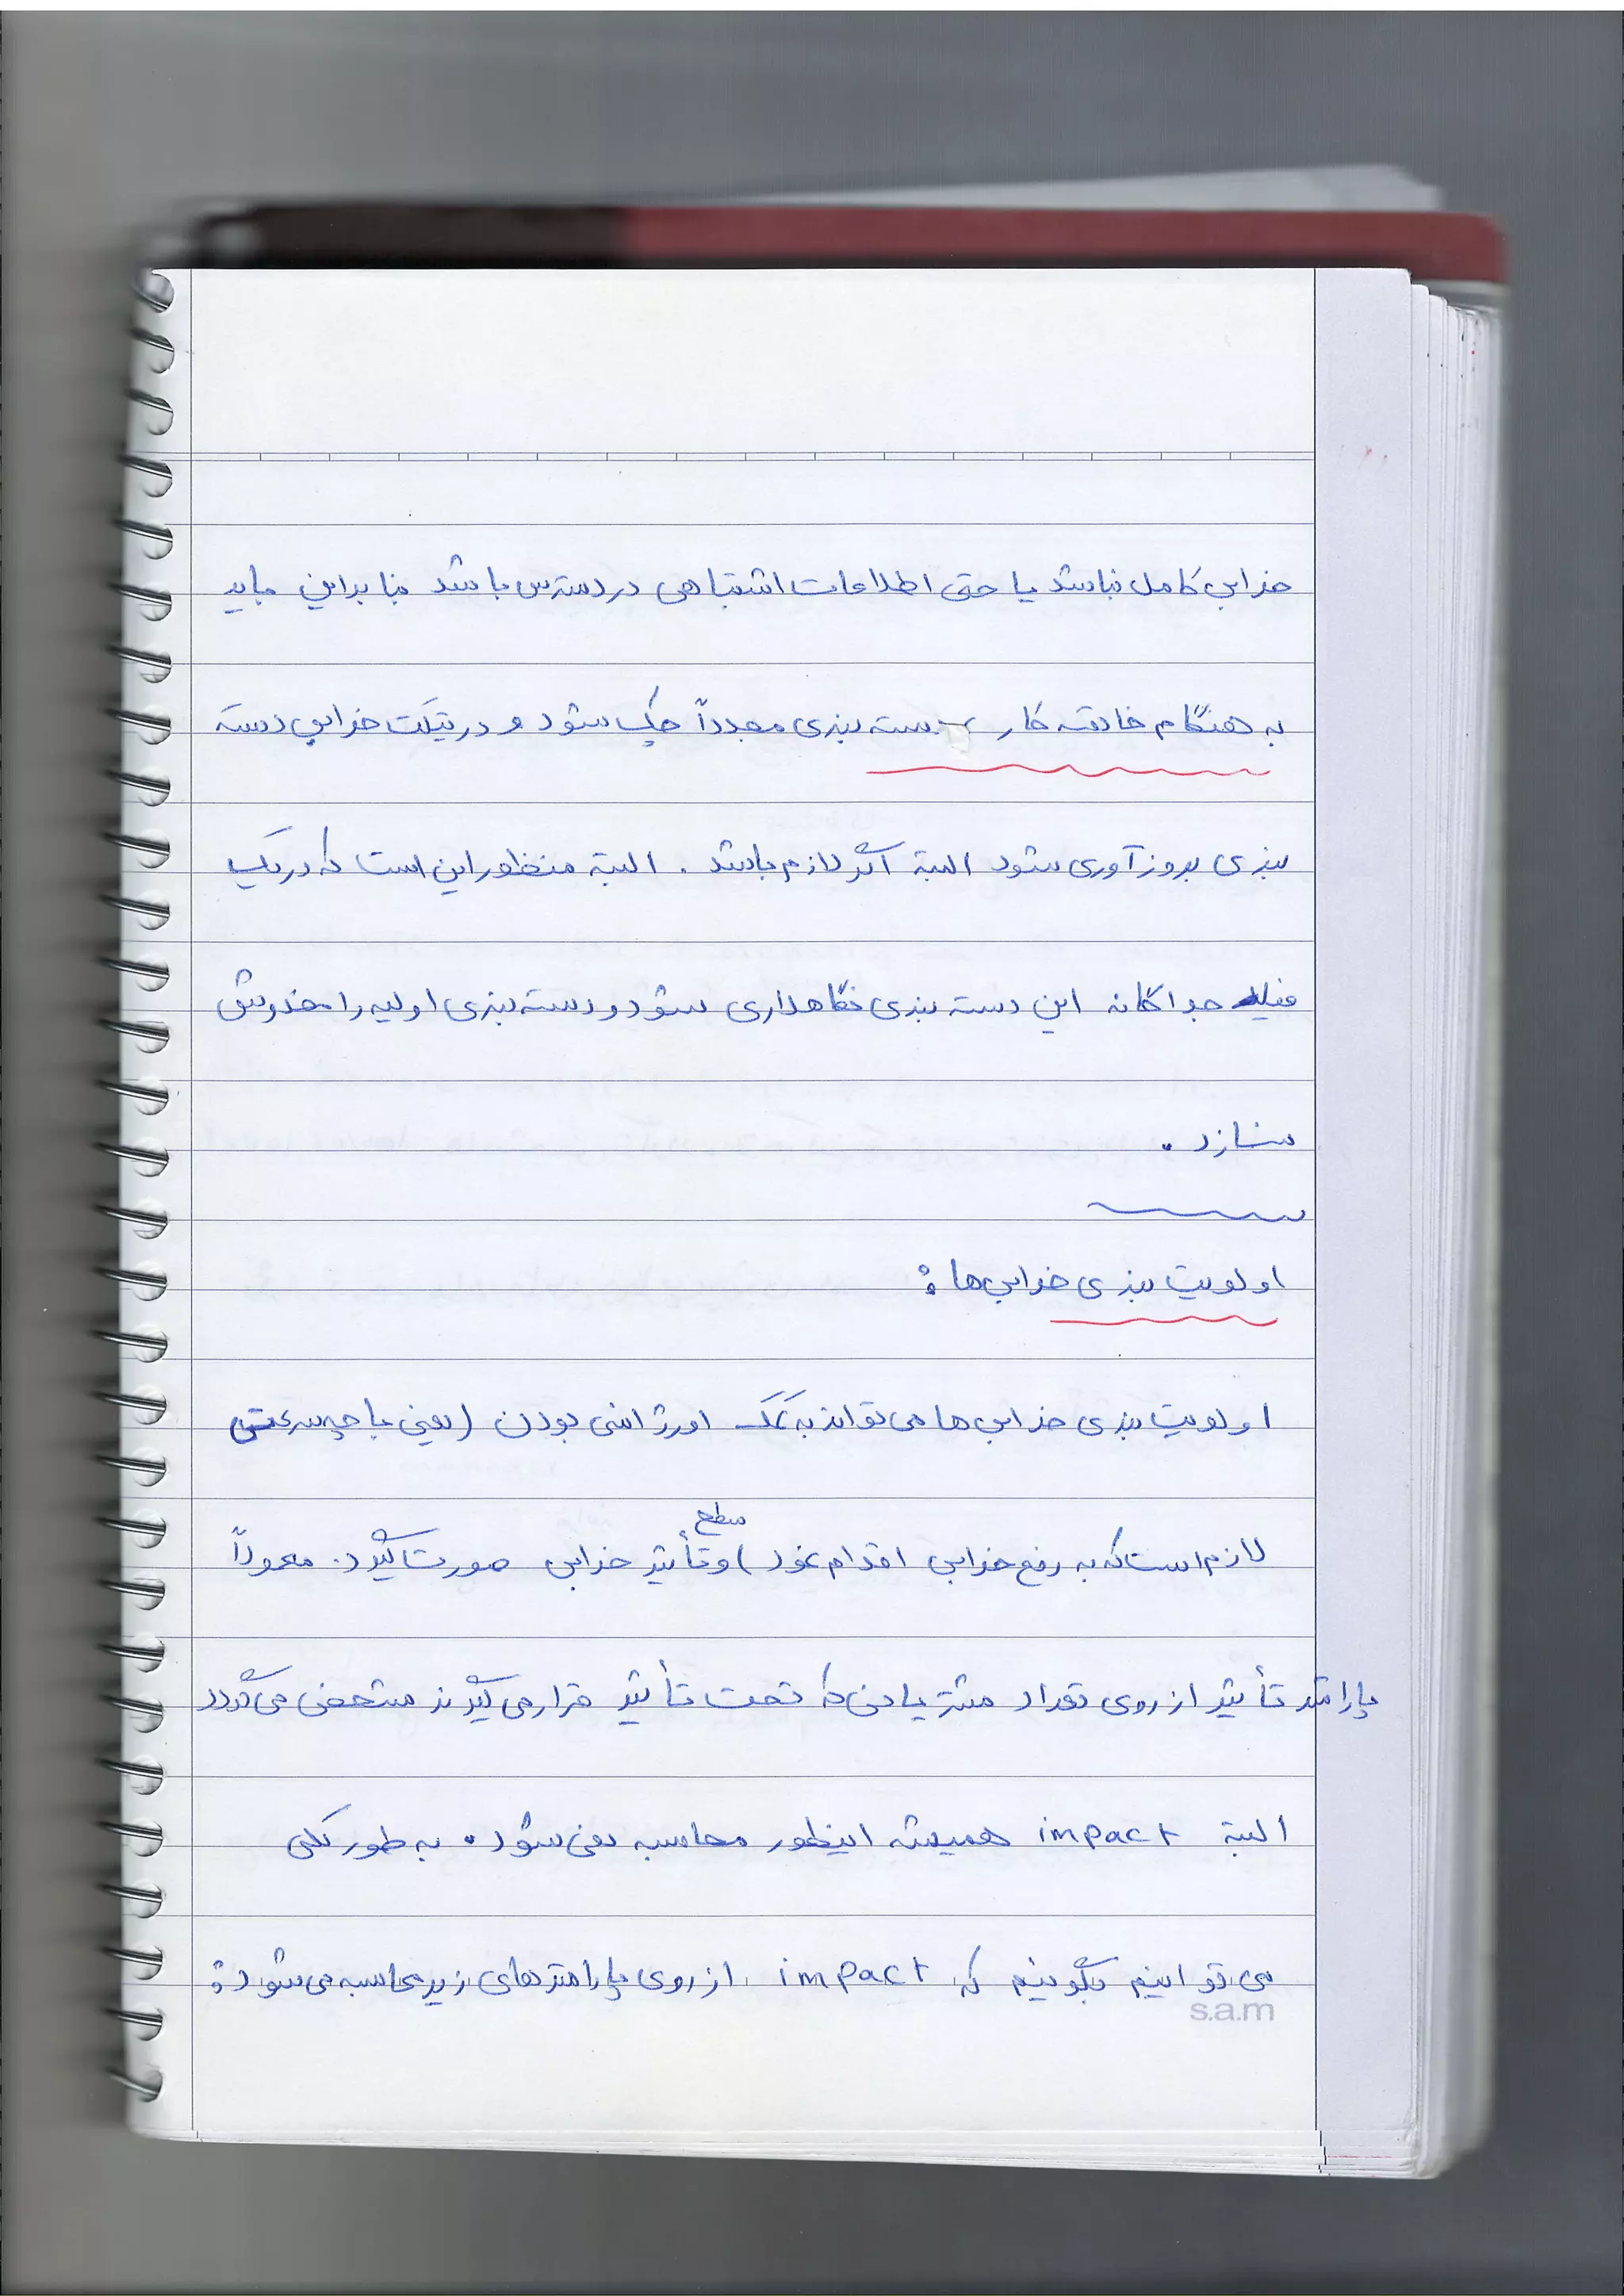 خرابی کامل نباشد یا حتی اطلاعات اشتباهی در دسترس باشد بنابراین باید
به هنگام خاتمه کار دسته بندی مجدداً چک شود و در تیکت خرابی دسته
بندی بروزآوری شود البته اگر لازم باشد . البته منظور این است که در یک
فیلد جداگانه این دسته بندی نگاهداری شود و دسته بندی اولیه را مخدوش
نسازد .
اولویت بندی خرابی‌ها :
اولویت بندی خرابی ها می تواند به کمک اورژانسی بودن (یعنی با چه سرعتی
لازم است که به رفع خرابی اقدام نمود) و سطح تأثیر خرابی صورت گیرد . معمولاً
پارامتر تأثیر از روی تعداد مشتریانی که تحت تأثیر قرار می گیرند مشخص می گردد
البته impact همیشه اینطور محاسبه نمی شود . به طور کلی
می توانیم بگوئیم که impact از روی پارامترهای زیر محاسبه می شود :
s.a.m